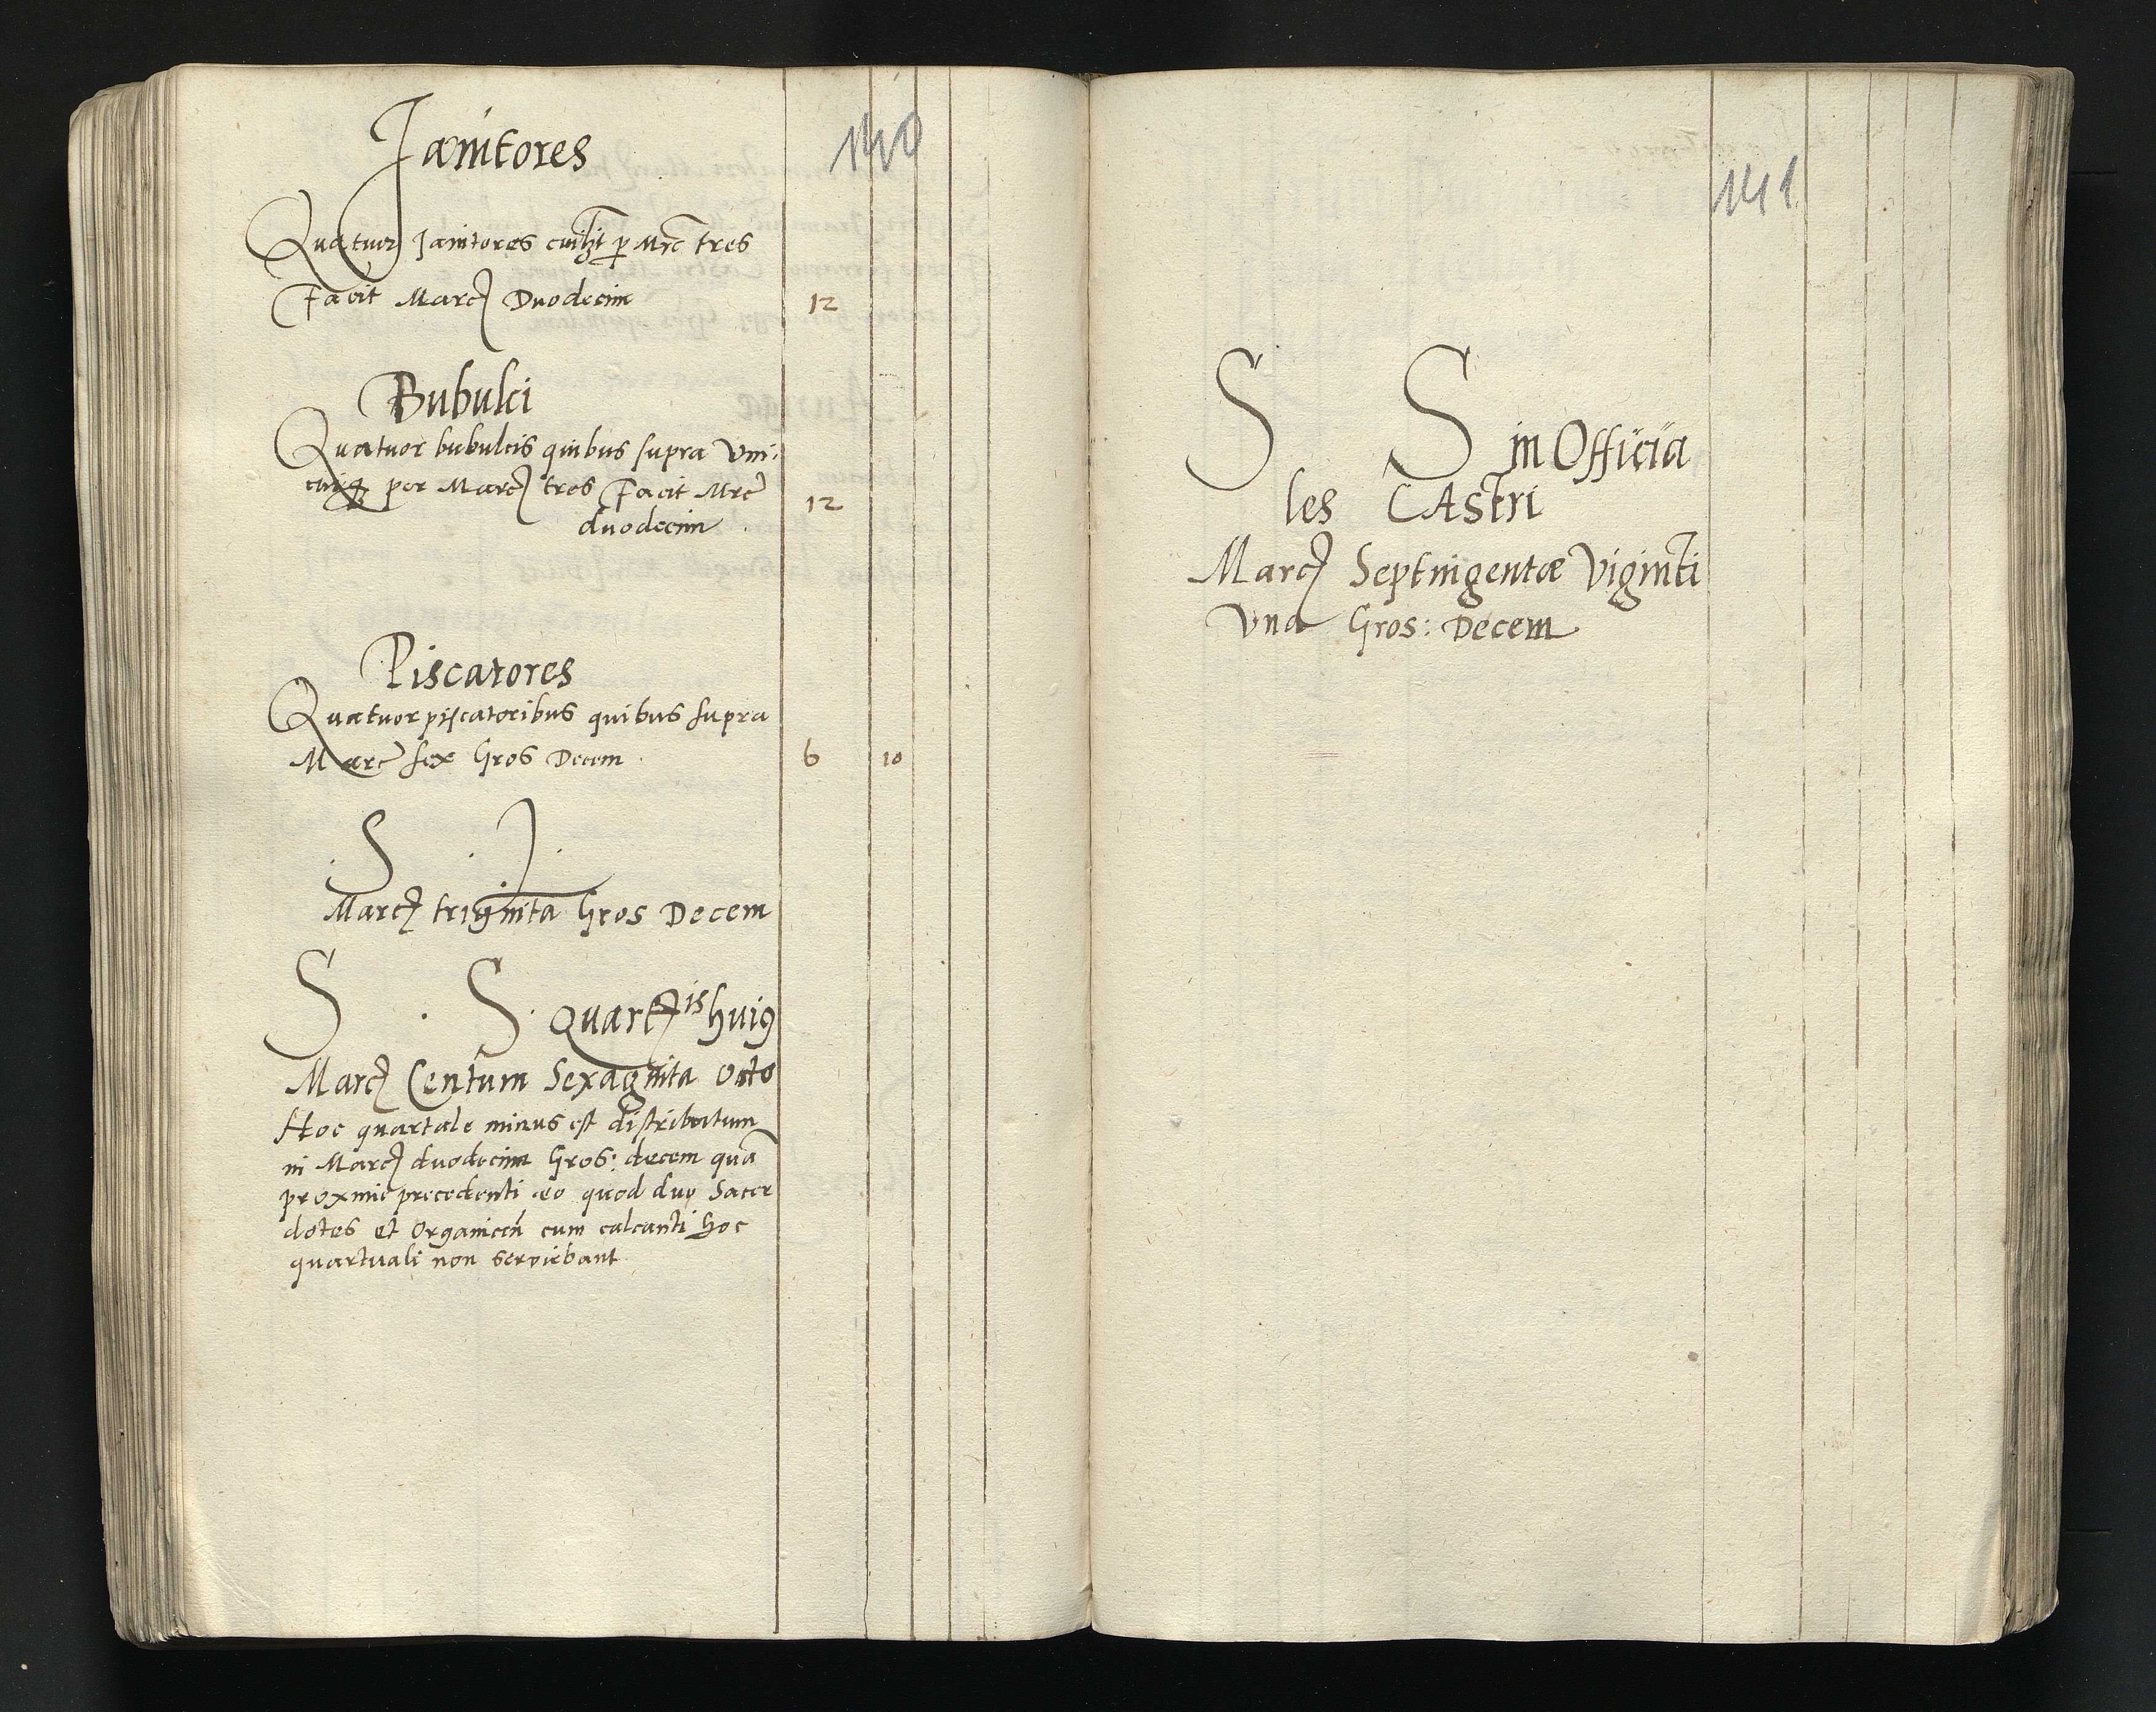 140
Janitores
Quatuor Janitores cuilibet p Mrc tres
Facit Marc Duodecim 12
Bubulci
Quatuor bubulcis quibus supra Vni-
cuiq per Marc tres Facit Mrc 12
duodecim
Piscatores
Quatuor piscatoribus quibus supra
Marc sex Gros Decem 6 10
S . J .
Marc triginta Gros Decem
S . S . Quart is huig
Marc Centum Sexaginta Octo
Hoc quartale minus est distributum
in Marc duodecim Gros: decem quā
proxime precedenti eo quod duo Sacer
dotes et Organicen cum calcanti hoc
quartuali non serviebant
141
S S in Officia
les CAstri
Marc Septingentæ Viginti
Vna Gros: Decem